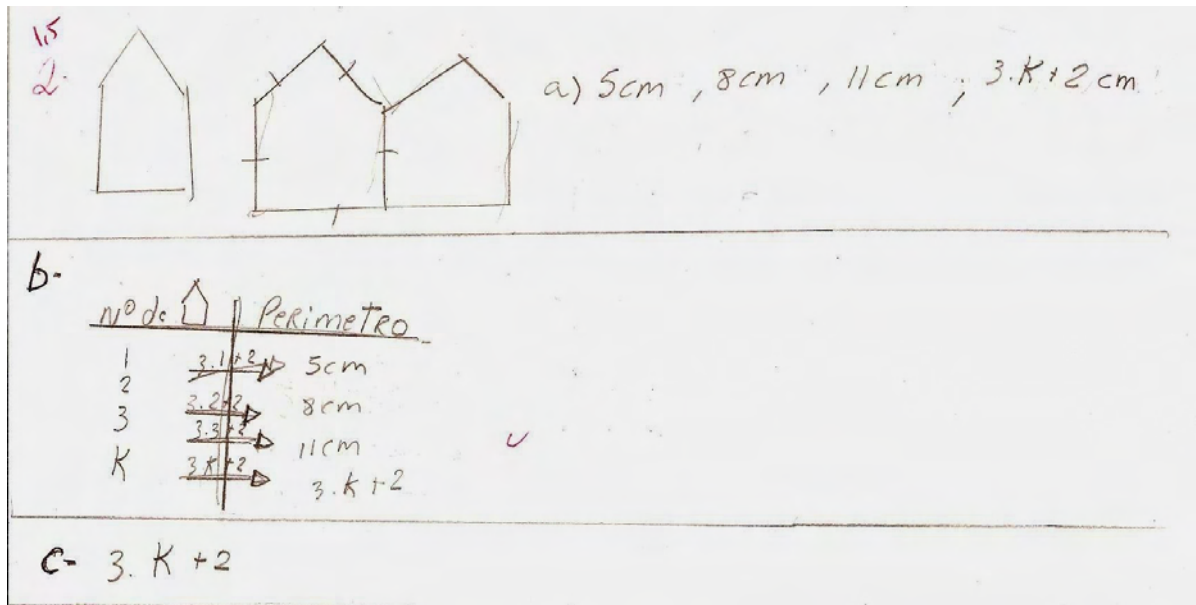 1,5
2.
a) 5cm , 8cm , 11cm ; 3.K+2 cm
b-
Nº de | Perimetro
1 3.1+2 5cm
2 3.2+2 8cm
3 3.3+2 11cm
K 3K+2 3.K+2
c- 3. K +2